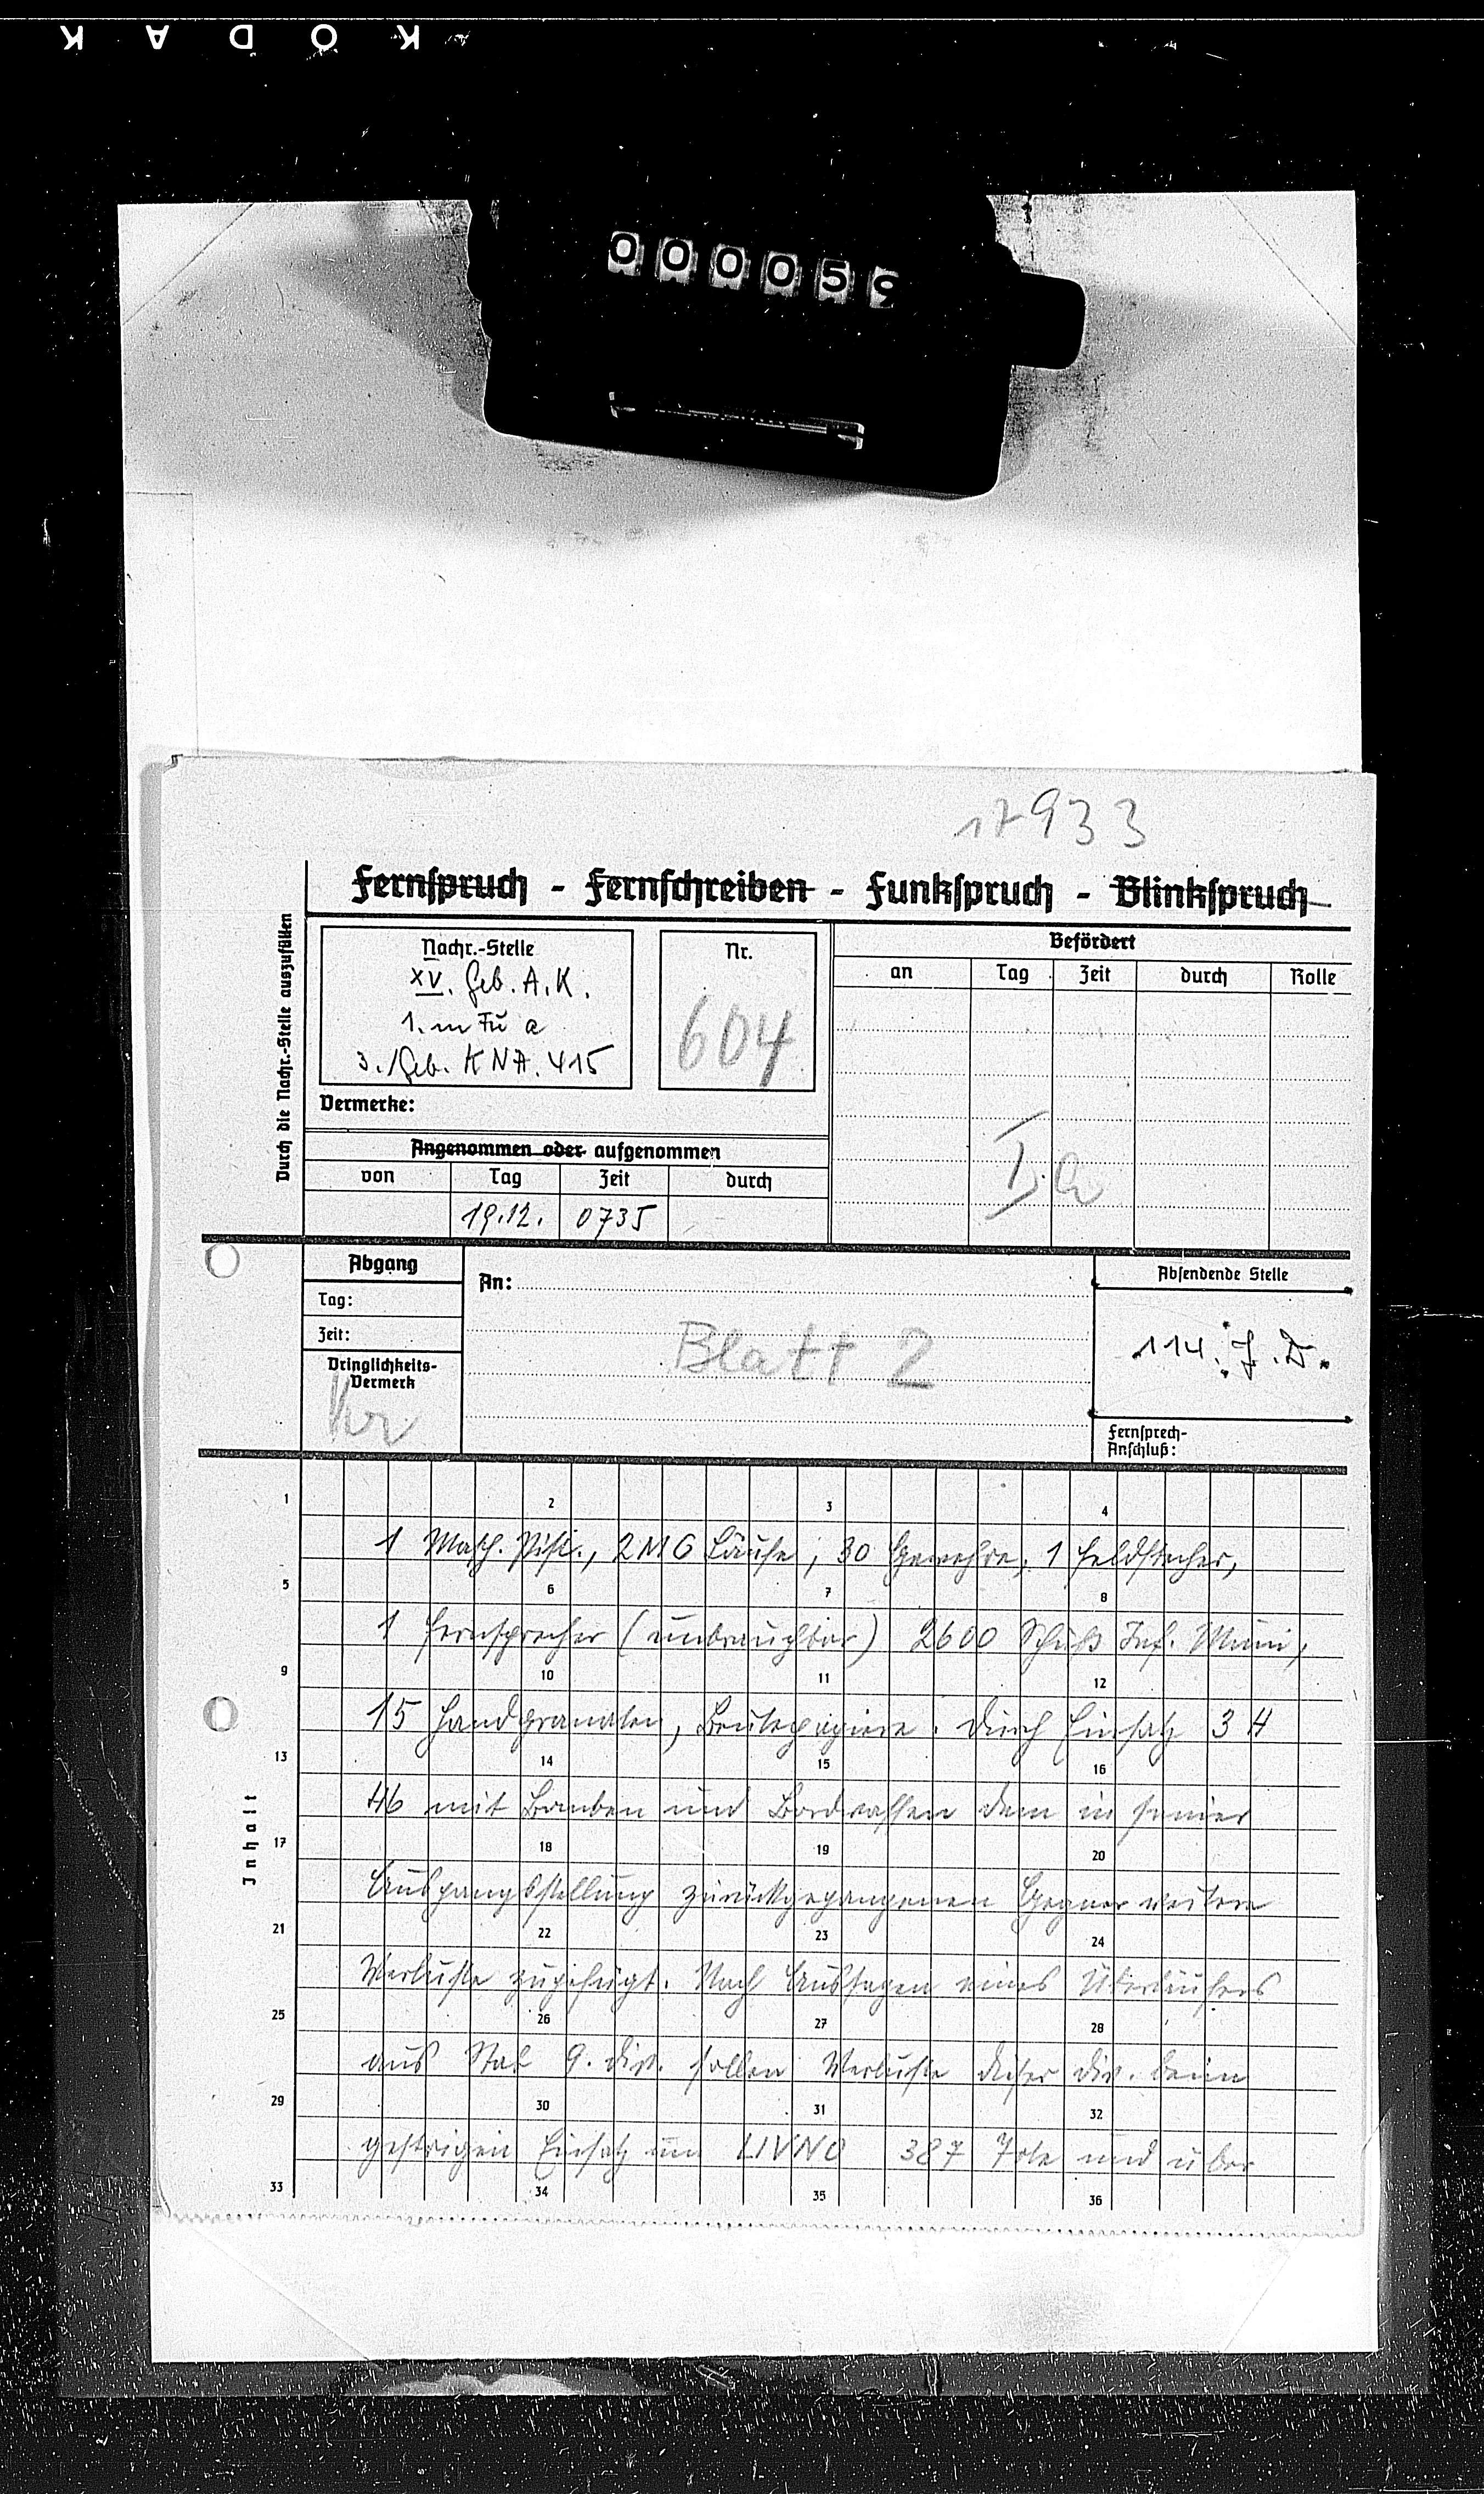 KODAK
000059
17933
Fernspruch - Fernschreiben - Funkspruch - Blinkspruch
Durch die Nachr.-Stelle auszufüllen
Nachr.-Stelle
XV. Geb. A.K.
3./Geb. KNA. 415
Nr.
604
Befördert
an Tag Zeit durch Rolle
Vermerke:
Angenommen oder aufgenommen
von Tag Zeit durch
19.12. 0735
Ia
Abgang
Tag:
Zeit:
Dringlichkeits-
Vermerk
Kr
An:
Blatt 2
Absendende Stelle
114. J.D.
Fernsprech-
Anschluß:
Inhalt
1 2 3 4
1 Masch. Pist., 2 MG Läufe, 30 Gewehre, 1 Feldstecher,
5 6 7 8
1 Fernsprecher (unbrauchbar) 2600 Schuß Inf. Muni,
9 10 11 12
15 Handgranaten, Beutepapiere. Durch Einsatz 3 H
13 14 15 16
46 mit Bomben und Bordwaffen dem in seine
17 18 19 20
Ausgangsstellung zurückgegangenen Gegner weitere
21 22 23 24
Verluste zugefügt. Nach Aussagen eines Überläufers
25 26 27 28
aus Stab 9. Div. sollen Verluste dieser Div. beim
29 30 31 32
gestrigen Einsatz um LIVNO 387 Tote und über
33 34 35 36